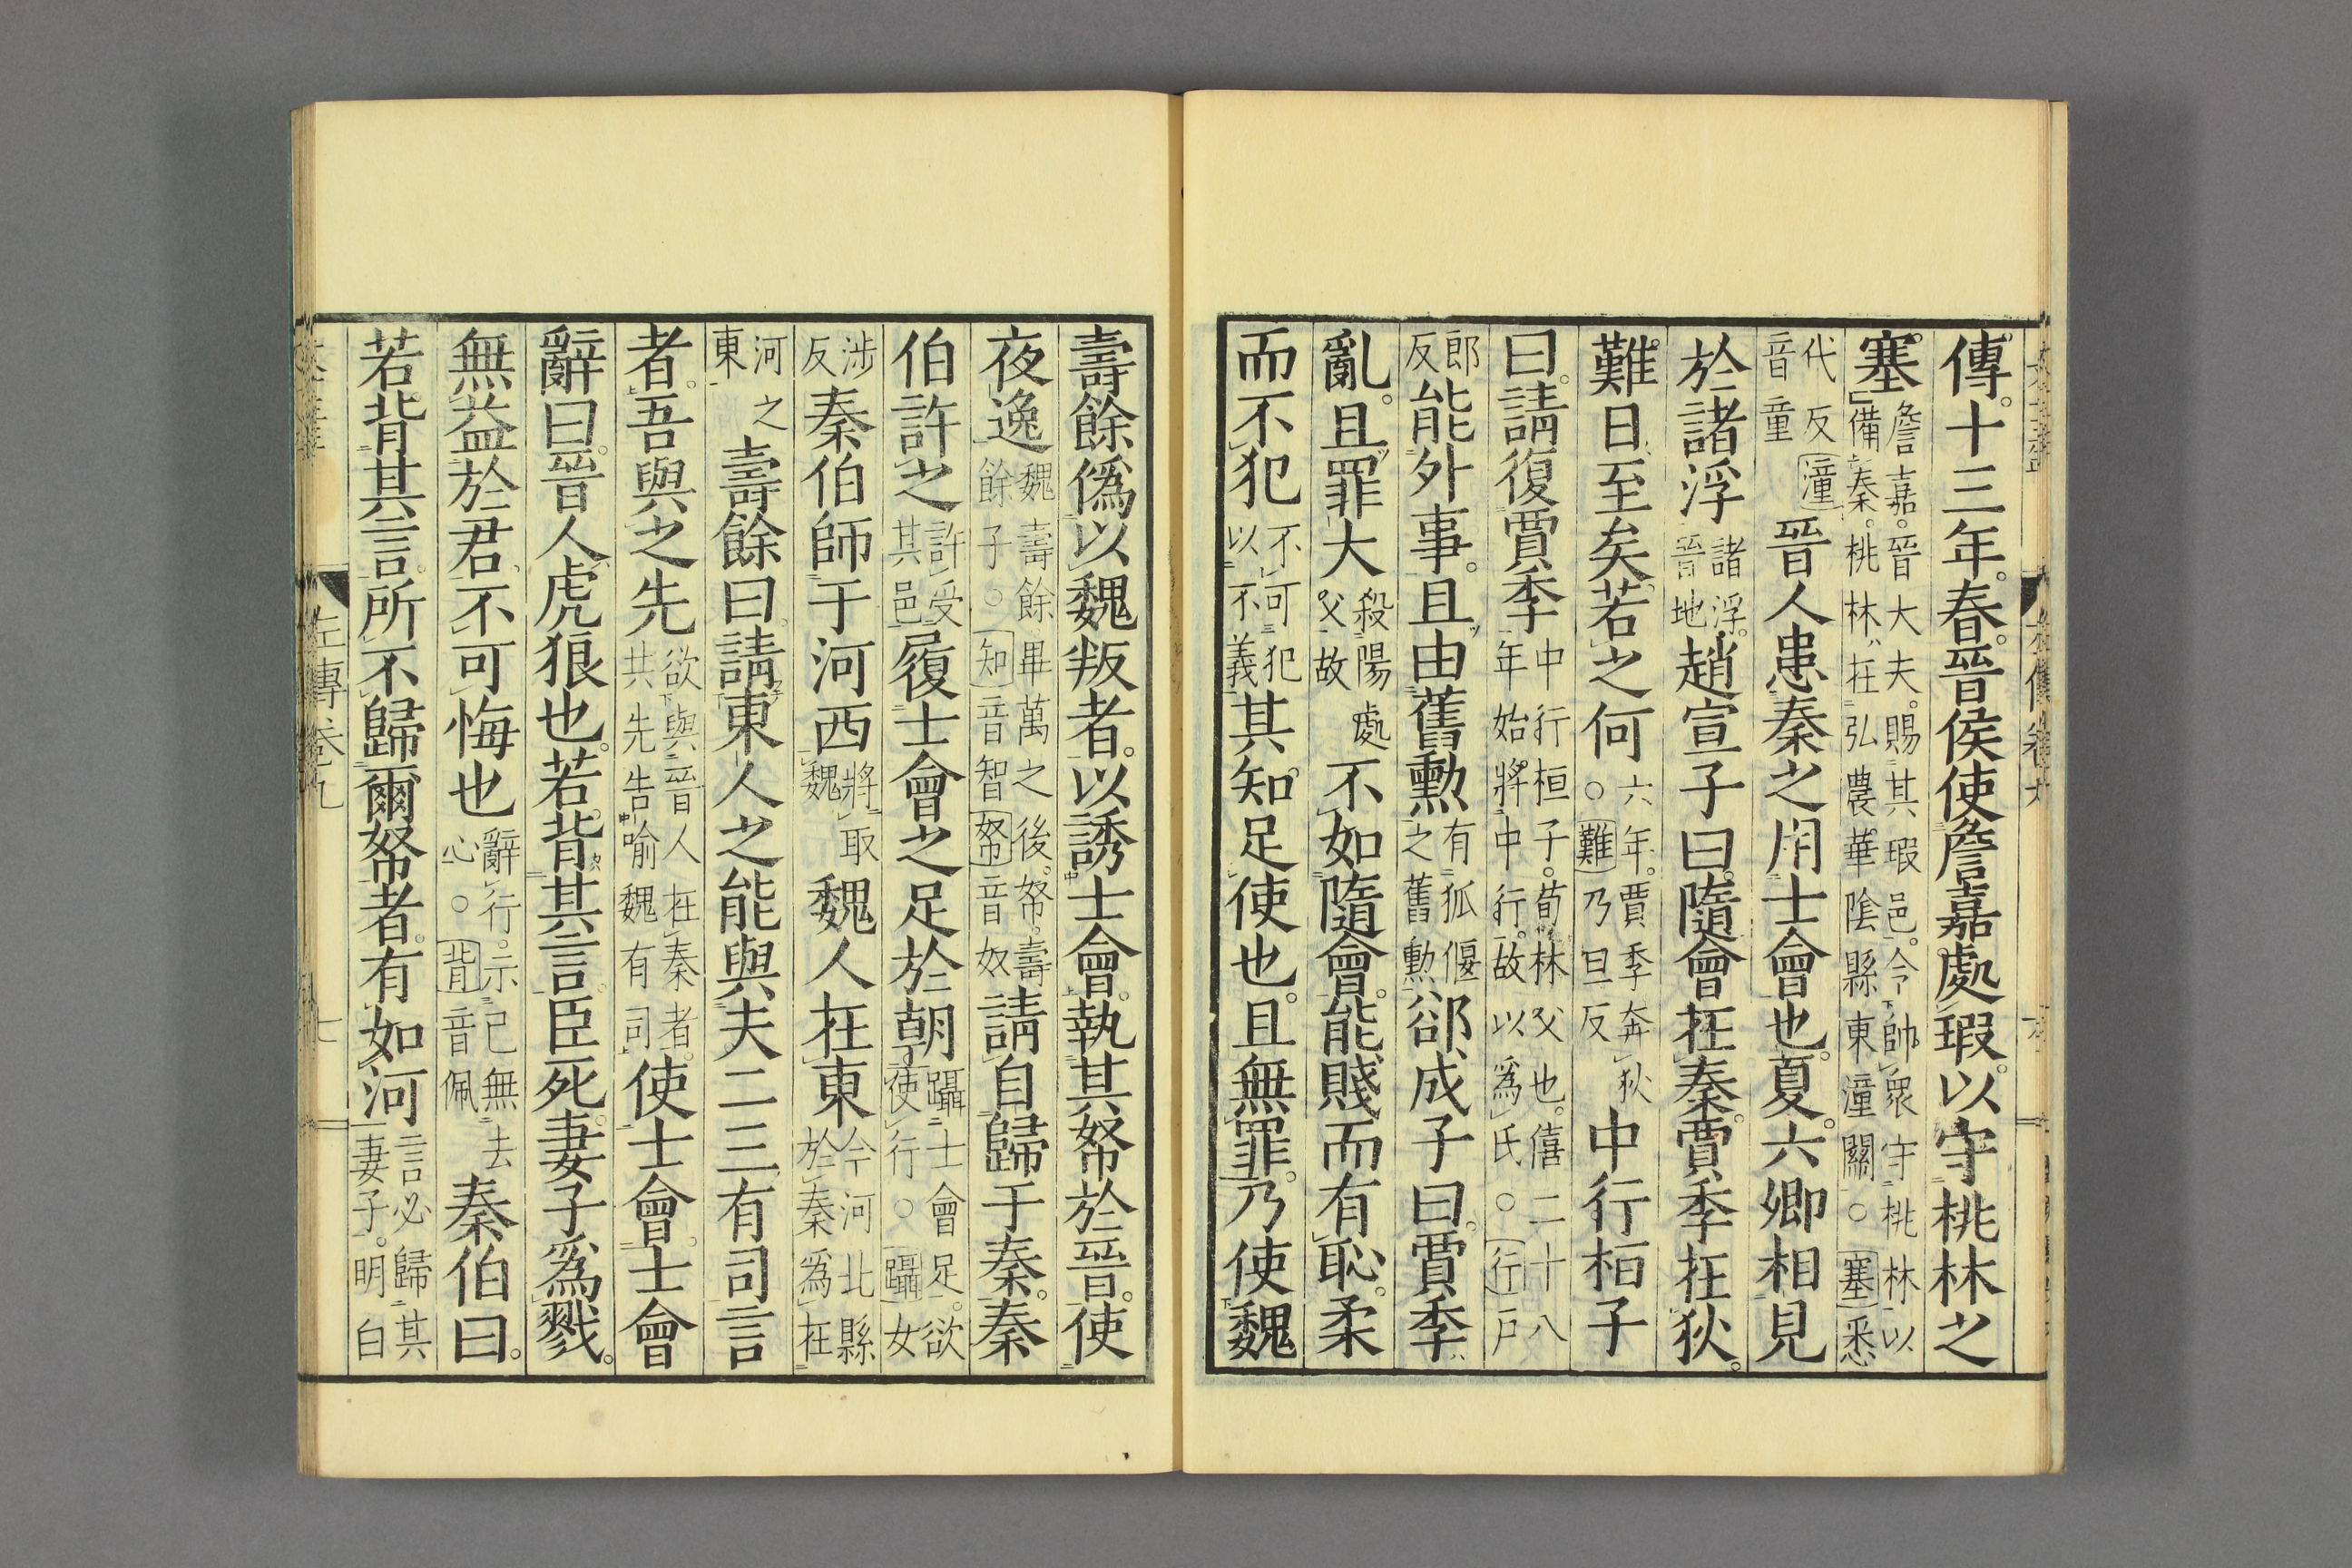 傳。十三年。春。晉侯使詹嘉處瑕。以守桃林之
塞。詹嘉。晉大夫。賜其瑕邑。令帥衆守桃林以備秦。桃林在弘農華陰縣東潼關。○塞悉
代反潼音童晉人患秦之用士會也。夏。六卿相見
於諸浮諸浮。晉地趙宣子曰。隨會在秦。賈季在狄。
難日至矣。若之何六年。賈季奔狄○難乃旦反中行桓子
曰。請復賈季中行桓子。荀林父也。僖二十八年始將中行。故以爲氏○行戶
郎反能外事。且由舊勳有狐偃之舊勳郤成子曰。賈季
亂。且罪大殺陽處父故不如隨會。能賤而有恥。柔
而不犯不可犯以不義其知足使也。且無罪。乃使魏
壽餘僞以魏叛者。以誘士會。執其帑於晉。使
夜逸魏壽餘畢萬之後。帑。壽餘子。○知音智帑音奴請自歸于秦。秦
伯許之許受其邑履士會之足於朝躡士會足。欲使行○躡女
涉反秦伯師于河西將取魏魏人在東今河北縣於秦爲在
河之東壽餘曰。請東人之能與夫二三有司言
者。吾與之先欲與晉人在秦者。共先告喻魏有司使士會。士會
辭曰。晉人虎狼也。若背其言。臣死。妻子爲戮。
無益於君。不可悔也辭行。示己無去心。○背音佩秦伯曰。
若背其言。所不歸爾帑者。有如河言必歸其妻子。明白
左傳卷九 七